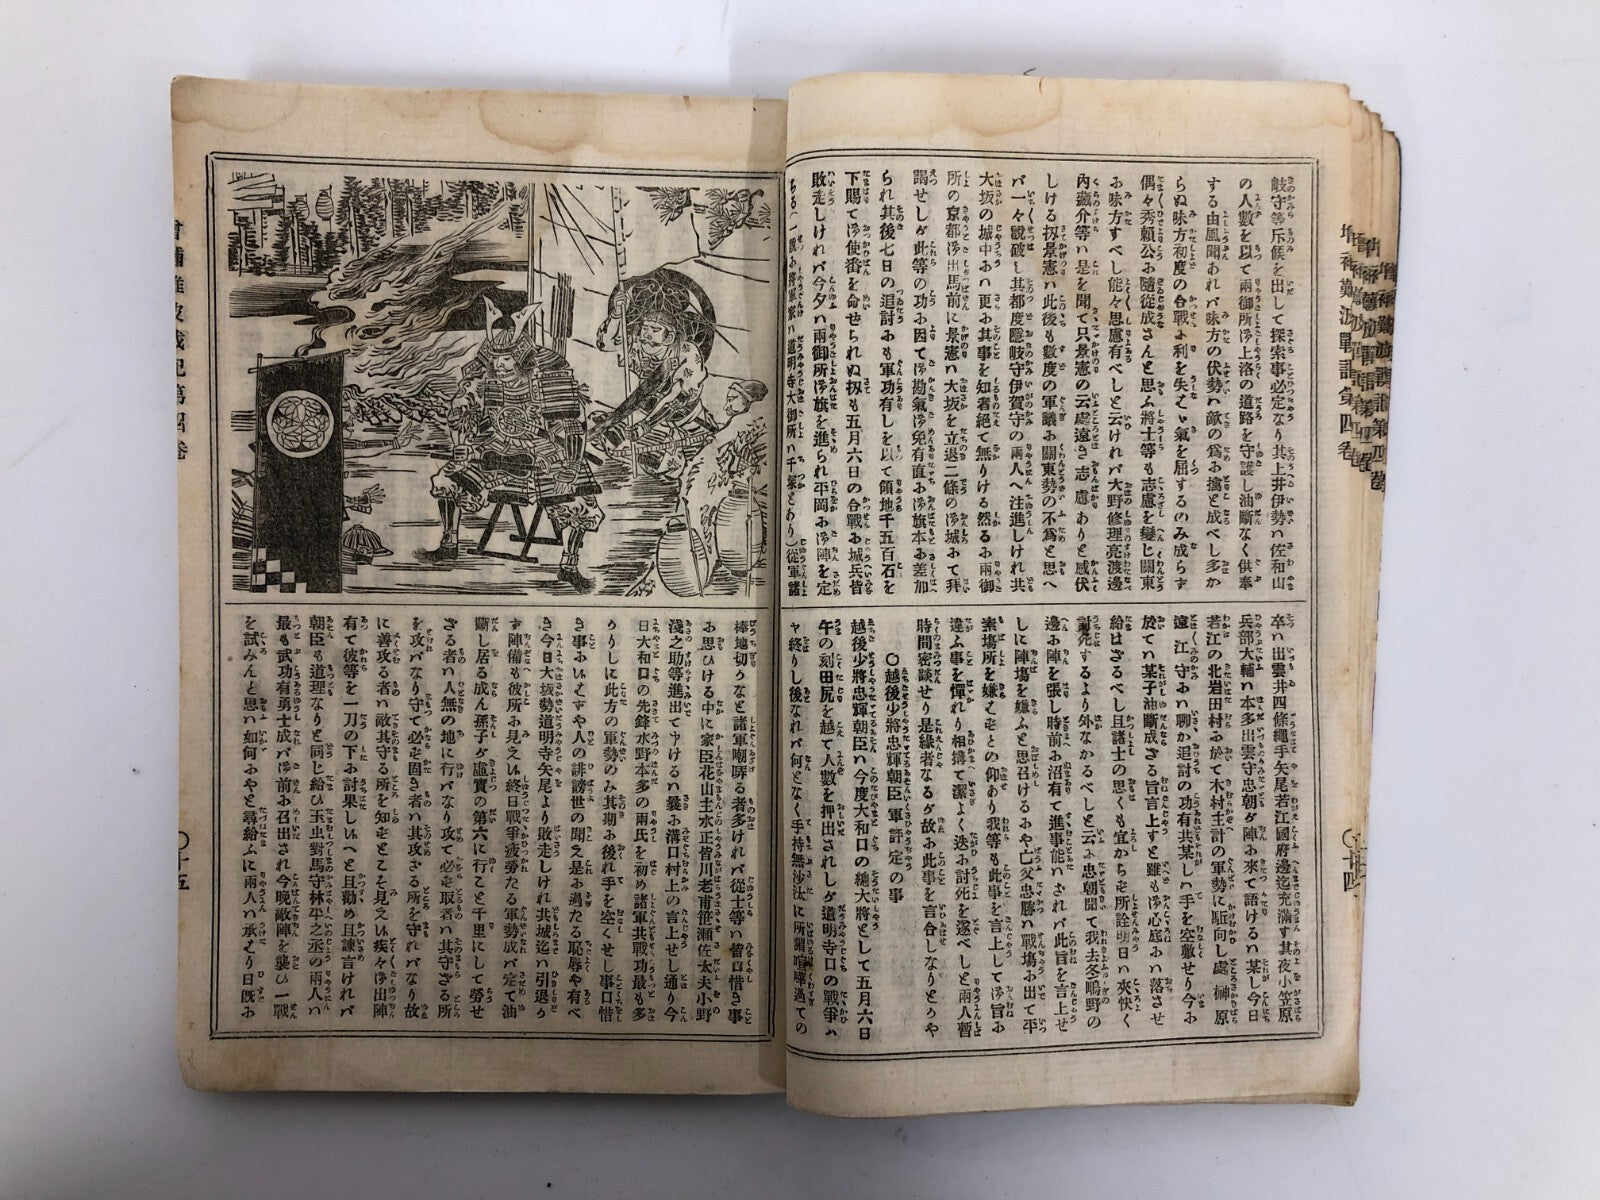 岐守等斥候を出して探索事必定なり其上井伊勢ハ佐和山
の人數を以て兩御所御上洛の道路を守護し油斷なく供奉
する由風聞あれバ味方の伏勢ハ敵の爲お擒と成べし多か
らぬ味方初度の合戰お利を失ひ氣を屈するのみ成らず
偶々秀賴公お隨從成さんと思ふ將士等も志慮を變じ關東
お味方すべし能々思慮有べしと云けれバ大野修理亮渡邊
內藏介等ハ是を聞て只景憲の云處遠き志慮ありと感伏
しける扨景憲ハ此後も數度の軍議お關東勢の不爲と思へ
バ一々說破し其都度隱岐守伊賀守の兩人へ注進しけれ共
大坂の城中おハ更お其事を知者絕て無りける然るお兩御
所の京都御出馬前に景憲ハ大坂を立退二條の御城お て拜
謁せしが此等の功お因て御勘氣御免有直お御旗本お差加
られ其後七日の追討おも軍功有しを以て領地千五百石を
下賜て御使番を命せられぬ扨も五月六日の合戰お城兵皆
敗走しけれバ今夕ハ兩御所御旗を進られ平岡お御陣を定
ちる(一說お將軍家ハ道明寺大御所ハ千塚とあり)從軍諸
卒ハ出雲井四條繩手矢尾若江國府邊迄充滿す其夜小笠原
兵部大輔ハ本多出雲守忠朝が陣お來て語けるハ某し今日
若江の北岩田村お於て木村主計の軍勢に駈向し處榊原
遠江守おハ聊か追討の功有共某しハ手を空敷せり今お
於てハ某子油斷成ざる旨言上すと雖も御心底おハ落させ
給はざるべし且諸士の思くも宜からも所詮明日ハ夾快く
討死するより外なかるべしと云ふ忠朝聞て我去冬鴫野の
邊お陣を張し時前お沼有て進事能ハされバ此旨を言上せ
しに陣場を嫌ふと思召けるおや亡父忠勝ハ戰場お出て平
素場所を嫌ひもとの仰あり我等も此事を言上して御旨お
違ふ事を憚れり相搆て潔よく迭お討死を遂べしと兩人暫
時間密談せり是緣者なるが故お此事を言合しなりとうや
〇越後少將忠輝朝臣軍評定の事
越後少將忠輝朝臣ハ今度大和口の總大將として五月六日
午の刻田尻を越て人數を押出されしが道明寺口の戰爭ハ
ヤ終りし後なれバ何となく手持無沙汰に所謂喧嘩過ての
難波戰記第四卷
〇十四
棒地切りなと諸軍嘲哢る者多けれバ從士等ハ皆口惜き事
お思ひける中に家臣花山主水正皆川老甫笹瀨佐太夫小野
淺之助等進出て申けるハ曩お溝口村上の言上せし通り今
日大和口の先鋒水野本多の兩氏を初め諸軍共戰功最も多
うりしに此方の軍勢のみ其期お後れ手を空くせし事口惜
き事おハくすや人の誹謗世の聞え是お過たる恥辱や有べ
き今日大坂勢道明寺矢尾より敗走しけれ共城迄ハ引退ら
す陣備も彼所お見え ハ終日戰爭疲勞たる軍勢成バ定て油
斷し居る成ん孫子が虛實の第六に行こと千里にして勞せ
ざる者ハ人無の地に行バなり攻て必も取者ハ其守ざる所
を攻バなり守て必も固き者ハ其攻ざる所を守れバなり故
に善攻る者ハ敵其守る所を知もとこそ見え ハ疾々御出陣
有て彼等を一刀の下お討果しハへと且勸め且諫言けれバ
朝臣も道理なりと同じ給ひ玉虫對馬守林平之丞の兩人ハ
最も武功有勇士成バ御前お召出され今晩敵陣を襲ひ一戰
を試みんと思ハ如何おやと尋給ふに兩人ハ承ゟり日旣お
補難波戰記第四卷
〇十五